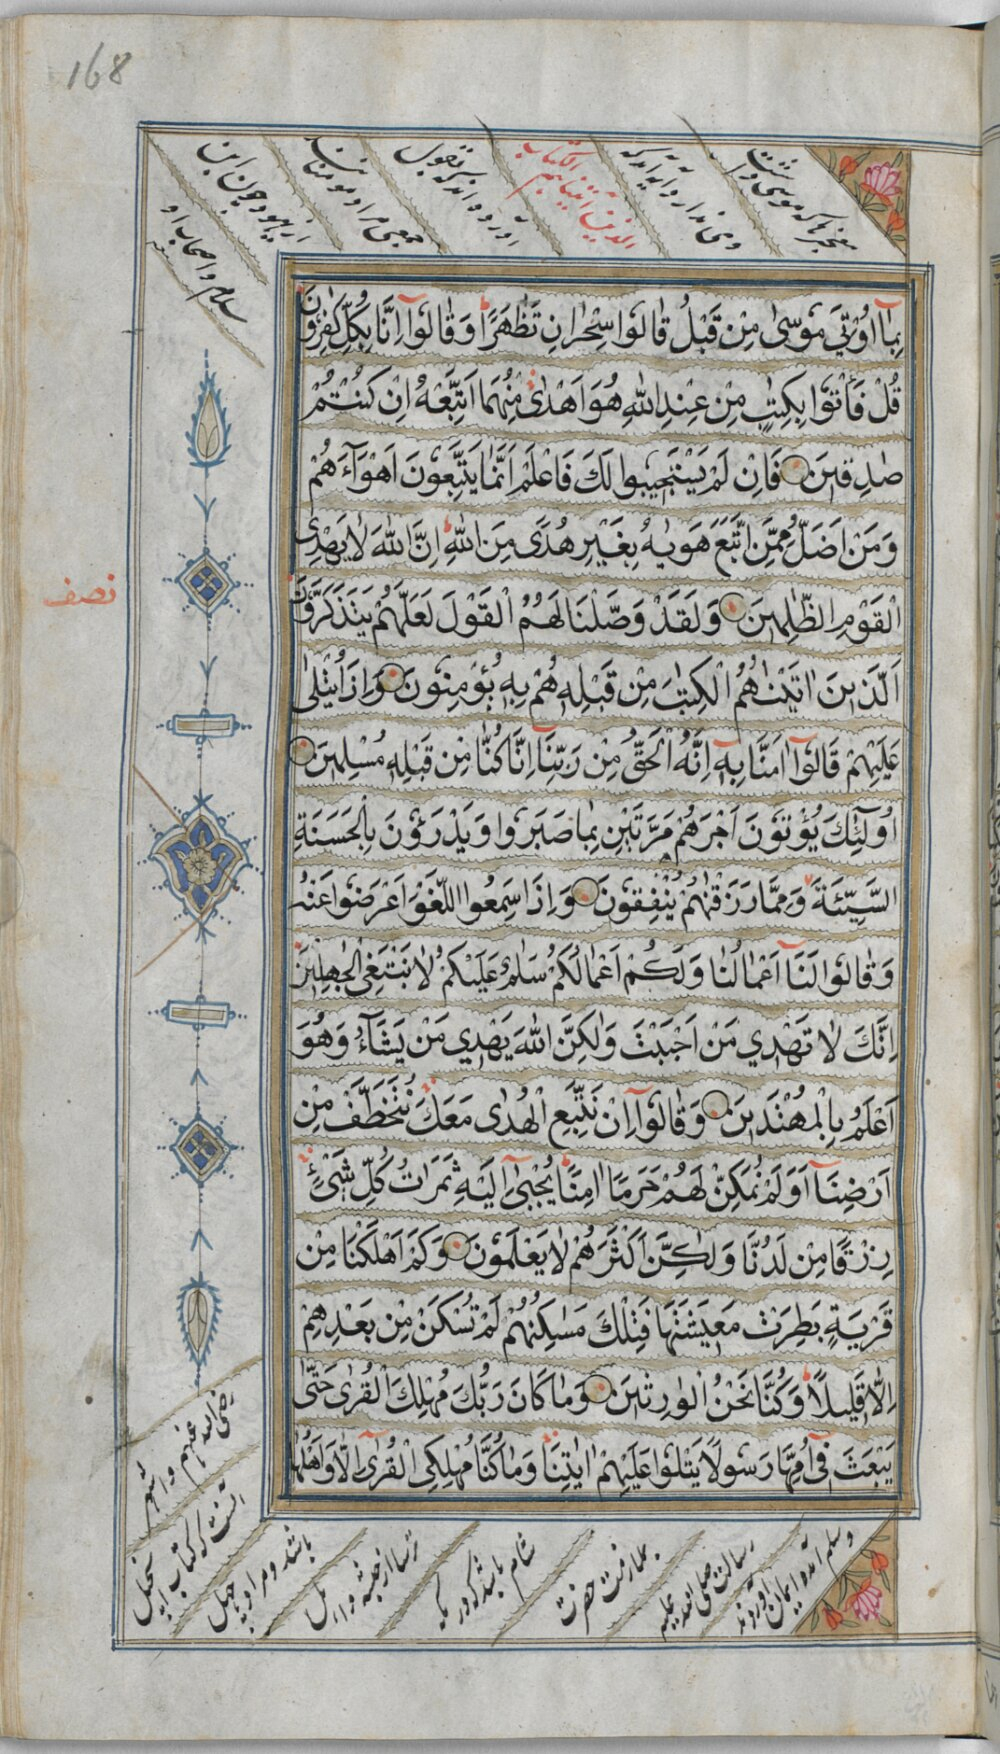 168
معجزها که موسی داشت
الذین آتیناهم الکتاب
بِمَآ اُوْتِيَ مُوْسٰى مِنْ قَبْلُ قَالُوا سِحْرَانِ تَظَاهَرَا وَقَالُوٓا اِنَّا بِكُلٍّ كٰفِرُوْنَ
قُلْ فَأْتُوْا بِكِتٰبٍ مِنْ عِنْدِ اللهِ هُوَ اَهْدٰى مِنْهُمَا اَتَّبِعْهُ اِنْ كُنْتُمْ
صٰدِقِيْنَ فَاِنْ لَمْ يَسْتَجِيبُوا لَكَ فَاعْلَمْ اَنَّمَا يَتَّبِعُوْنَ اَهْوَآءَهُمْ
وَمَنْ اَضَلُّ مِمَّنِ اتَّبَعَ هَوٰيهُ بِغَيْرِ هُدًى مِنَ اللهِ اِنَّ اللهَ لَا يَهْدِى
الْقَوْمَ الظّٰلِمِيْنَ وَلَقَدْ وَصَّلْنَا لَهُمُ الْقَوْلَ لَعَلَّهُمْ يَتَذَكَّرُوْنَ
نصف
اَلَّذِيْنَ اٰتَيْنٰهُمُ الْكِتٰبَ مِنْ قَبْلِهِ هُمْ بِهِ يُؤْمِنُوْنَ وَاِذَا يُتْلٰى
عَلَيْهِمْ قَالُوٓا اٰمَنَّا بِهِٓ اِنَّهُ الْحَقُّ مِنْ رَبِّنَآ اِنَّا كُنَّا مِنْ قَبْلِهِ مُسْلِمِيْنَ
اُولٰٓئِكَ يُؤْتَوْنَ اَجْرَهُمْ مَرَّتَيْنِ بِمَا صَبَرُوا وَيَدْرَؤُنَ بِالْحَسَنَةِ
السَّيِّئَةَ وَمِمَّا رَزَقْنٰهُمْ يُنْفِقُوْنَ وَاِذَا سَمِعُوا اللَّغْوَ اَعْرَضُوا عَنْهُ
وَقَالُوا لَنَآ اَعْمَالُنَا وَلَكُمْ اَعْمَالُكُمْ سَلٰمٌ عَلَيْكُمْ لَا نَبْتَغِي الْجٰهِلِيْنَ
اِنَّكَ لَا تَهْدِي مَنْ اَحْبَبْتَ وَلٰكِنَّ اللهَ يَهْدِي مَنْ يَشَآءُ وَهُوَ
اَعْلَمُ بِالْمُهْتَدِيْنَ وَقَالُوٓا اِنْ نَتَّبِعِ الْهُدٰى مَعَكَ نُتَخَطَّفْ مِنْ
اَرْضِنَآ اَوَلَمْ نُمَكِّنْ لَهُمْ حَرَمًا اٰمِنًا يُجْبٰىٓ اِلَيْهِ ثَمَرَاتُ كُلِّ شَيْءٍ
رِزْقًا مِنْ لَدُنَّا وَلٰكِنَّ اَكْثَرَهُمْ لَا يَعْلَمُوْنَ وَكَمْ اَهْلَكْنَا مِنْ
قَرْيَةٍ بَطِرَتْ مَعِيْشَتَهَا فَتِلْكَ مَسٰكِنُهُمْ لَمْ تُسْكَنْ مِنْ بَعْدِهِمْ
اِلَّا قَلِيْلًا وَكُنَّا نَحْنُ الْوَارِثِيْنَ وَمَا كَانَ رَبُّكَ مُهْلِكَ الْقُرٰى حَتّٰى
يَبْعَثَ فِىٓ اُمِّهَا رَسُوْلًا يَتْلُوْا عَلَيْهِمْ اٰيٰتِنَا وَمَا كُنَّا مُهْلِكِى الْقُرٰىٓ اِلَّا وَاَهْلُهَا